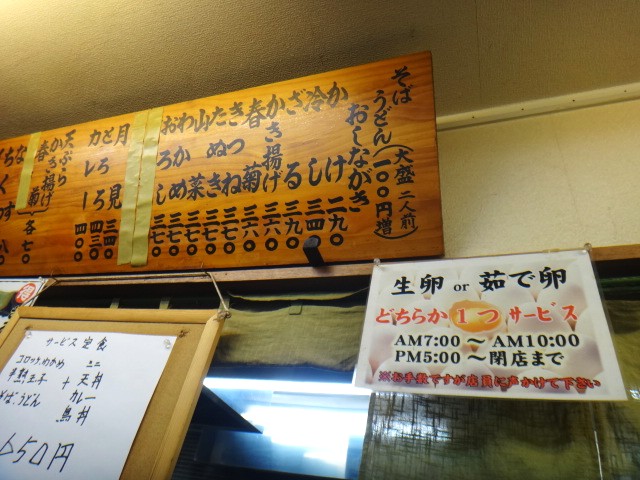 そば
うどん(大盛二人前
一〇〇円増)
おしながき
かけ 二九〇
冷し 三四〇
ざる 三九〇
かき揚げ 三六〇
春菊 三六〇
きつね 三七〇
たぬき 三七〇
山菜 三七〇
わかめ 三七〇
おろし 三七〇
月見 三四〇
とろろ 四三〇
カレー 四〇〇
天ぷら
かき揚げ
春菊
各七〇
サービス定食
コロッケ,わかめ ミニ
半熟玉子 + 天丼
そば、うどん カレー
鳥丼
650円
生卵 or 茹で卵
どちらか1つサービス
AM7:00 ~ AM10:00
PM5:00 ~閉店まで
※お手数ですが店員に声かけて下さい